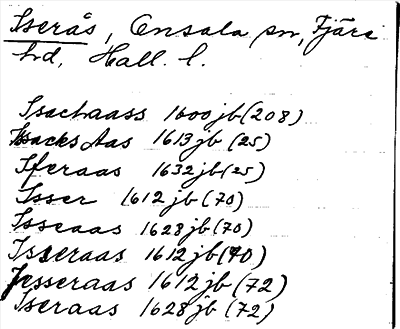 Iserås, Onsala sn, Fjäre
hd, Hall. l.
Isachaass 1600 jb (208)
Issacks Aas 1613 jb (25)
Iferaas 1632 jb (25)
Isser 1612 jb (70)
Isseaas 1628 jb (70)
Isseraas 1612 jb (70)
Jesseraas 1612 jb (72)
Iseraas 1628 jb (72)